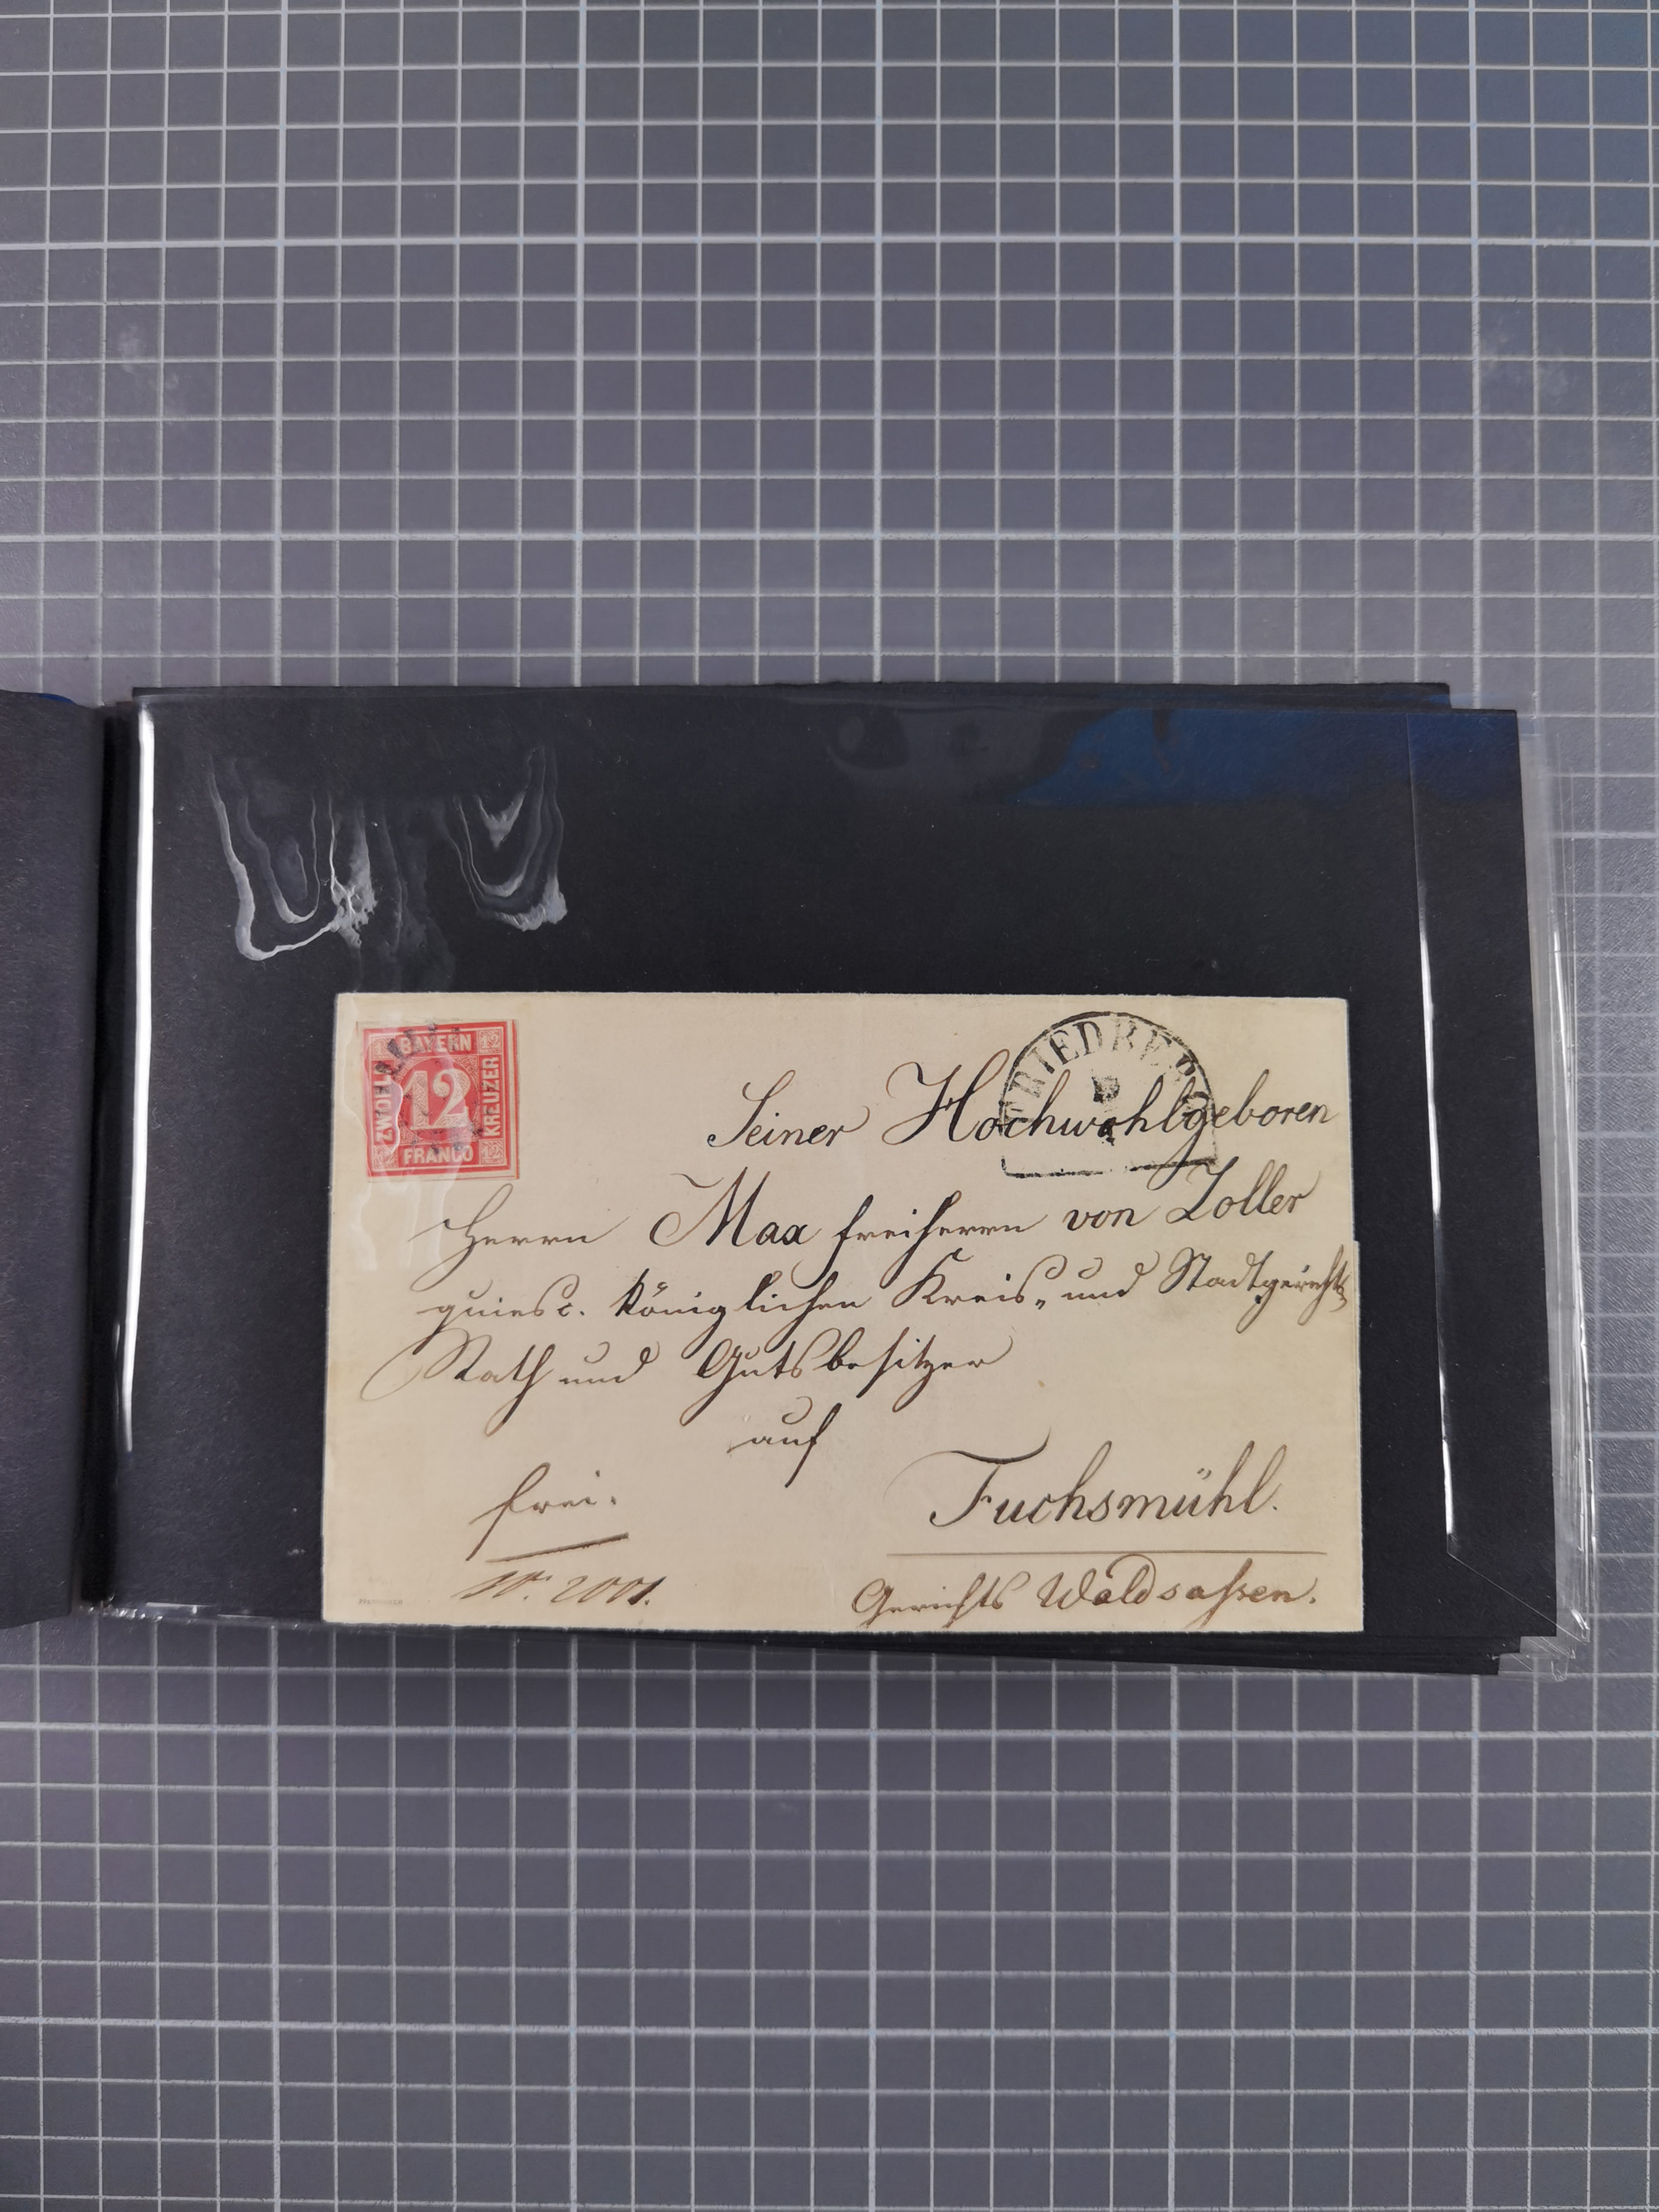 BAYERN
12 12
ZWÖLF 12 KREUZER
12 12
FRANCO
Seiner Hochwohlgeboren
Herrn Max Freiherrn von Zoller
quiesc. Königlichen Kreis- und Stadtgerichts
Rath und Gutsbesitzer
auf
frei.
Fuchsmühl.
2001.
Gerichts Waldsaßen.